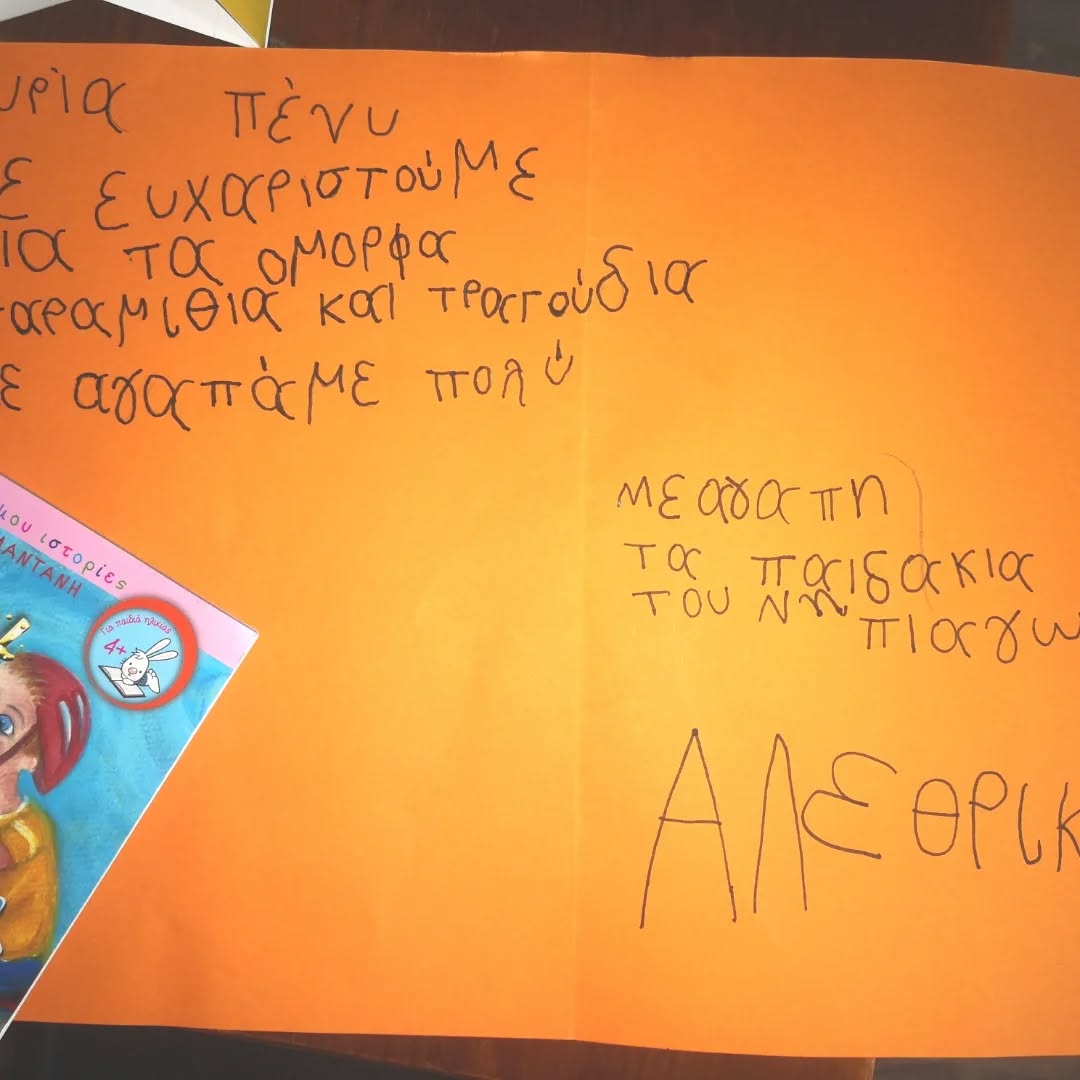 υρία πένυ
ε ευχαριστούμε
ια τα ομορφα
αραμιθια και τραγούδια
ε αγαπάμε πολύ
με αγαπη
τα παιδάκια
του νη πιαγω
ΑΛΕΘΡΙΚ
μου ιστορίες
ΜΑΝΤΑΝΗ
Για παιδιά ηλικίας
4+